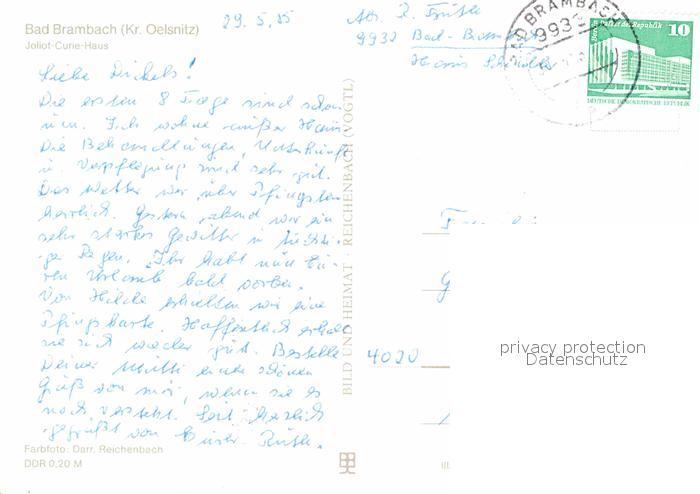 Bad Brambach (Kr. Oelsnitz)
Joliot-Curie-Haus
29. 5. 85
Abs. R.
9932 Bad-Bramb
Haus
BAD BRAMBACH
9933
Palast der Republik 10
DEUTSCHE DEMOKRATISCHE REPUBLIK
Liebe Dickels!
Die ersten 8 Tage sind schon
um. Ich wohne außer Haus
Die Behandlungen, Unterkunft
u. Verpflegung sind sehr gut.
Das Wetter war über Pfingsten
herrlich. Gestern abend war ein
sehr starkes Gewitter u.
ger Regen. Ihr habt nun Eu-
ren Urlaub bald vorbei.
Von Hilde erhielten wir eine
Pfingstkarte. Hoffentlich erholt
sie sich wieder gut. Bestelle
Deiner Mutti einen schönen
Gruß von mir, wenn sie es
noch versteht. Seid herzlich
gegrüßt von Eurer Ruth.
4020
privacy protection
Datenschutz
BILD UND HEIMAT · REICHENBACH (VOGTL)
Farbfoto: Darr, Reichenbach
DDR 0,20 M